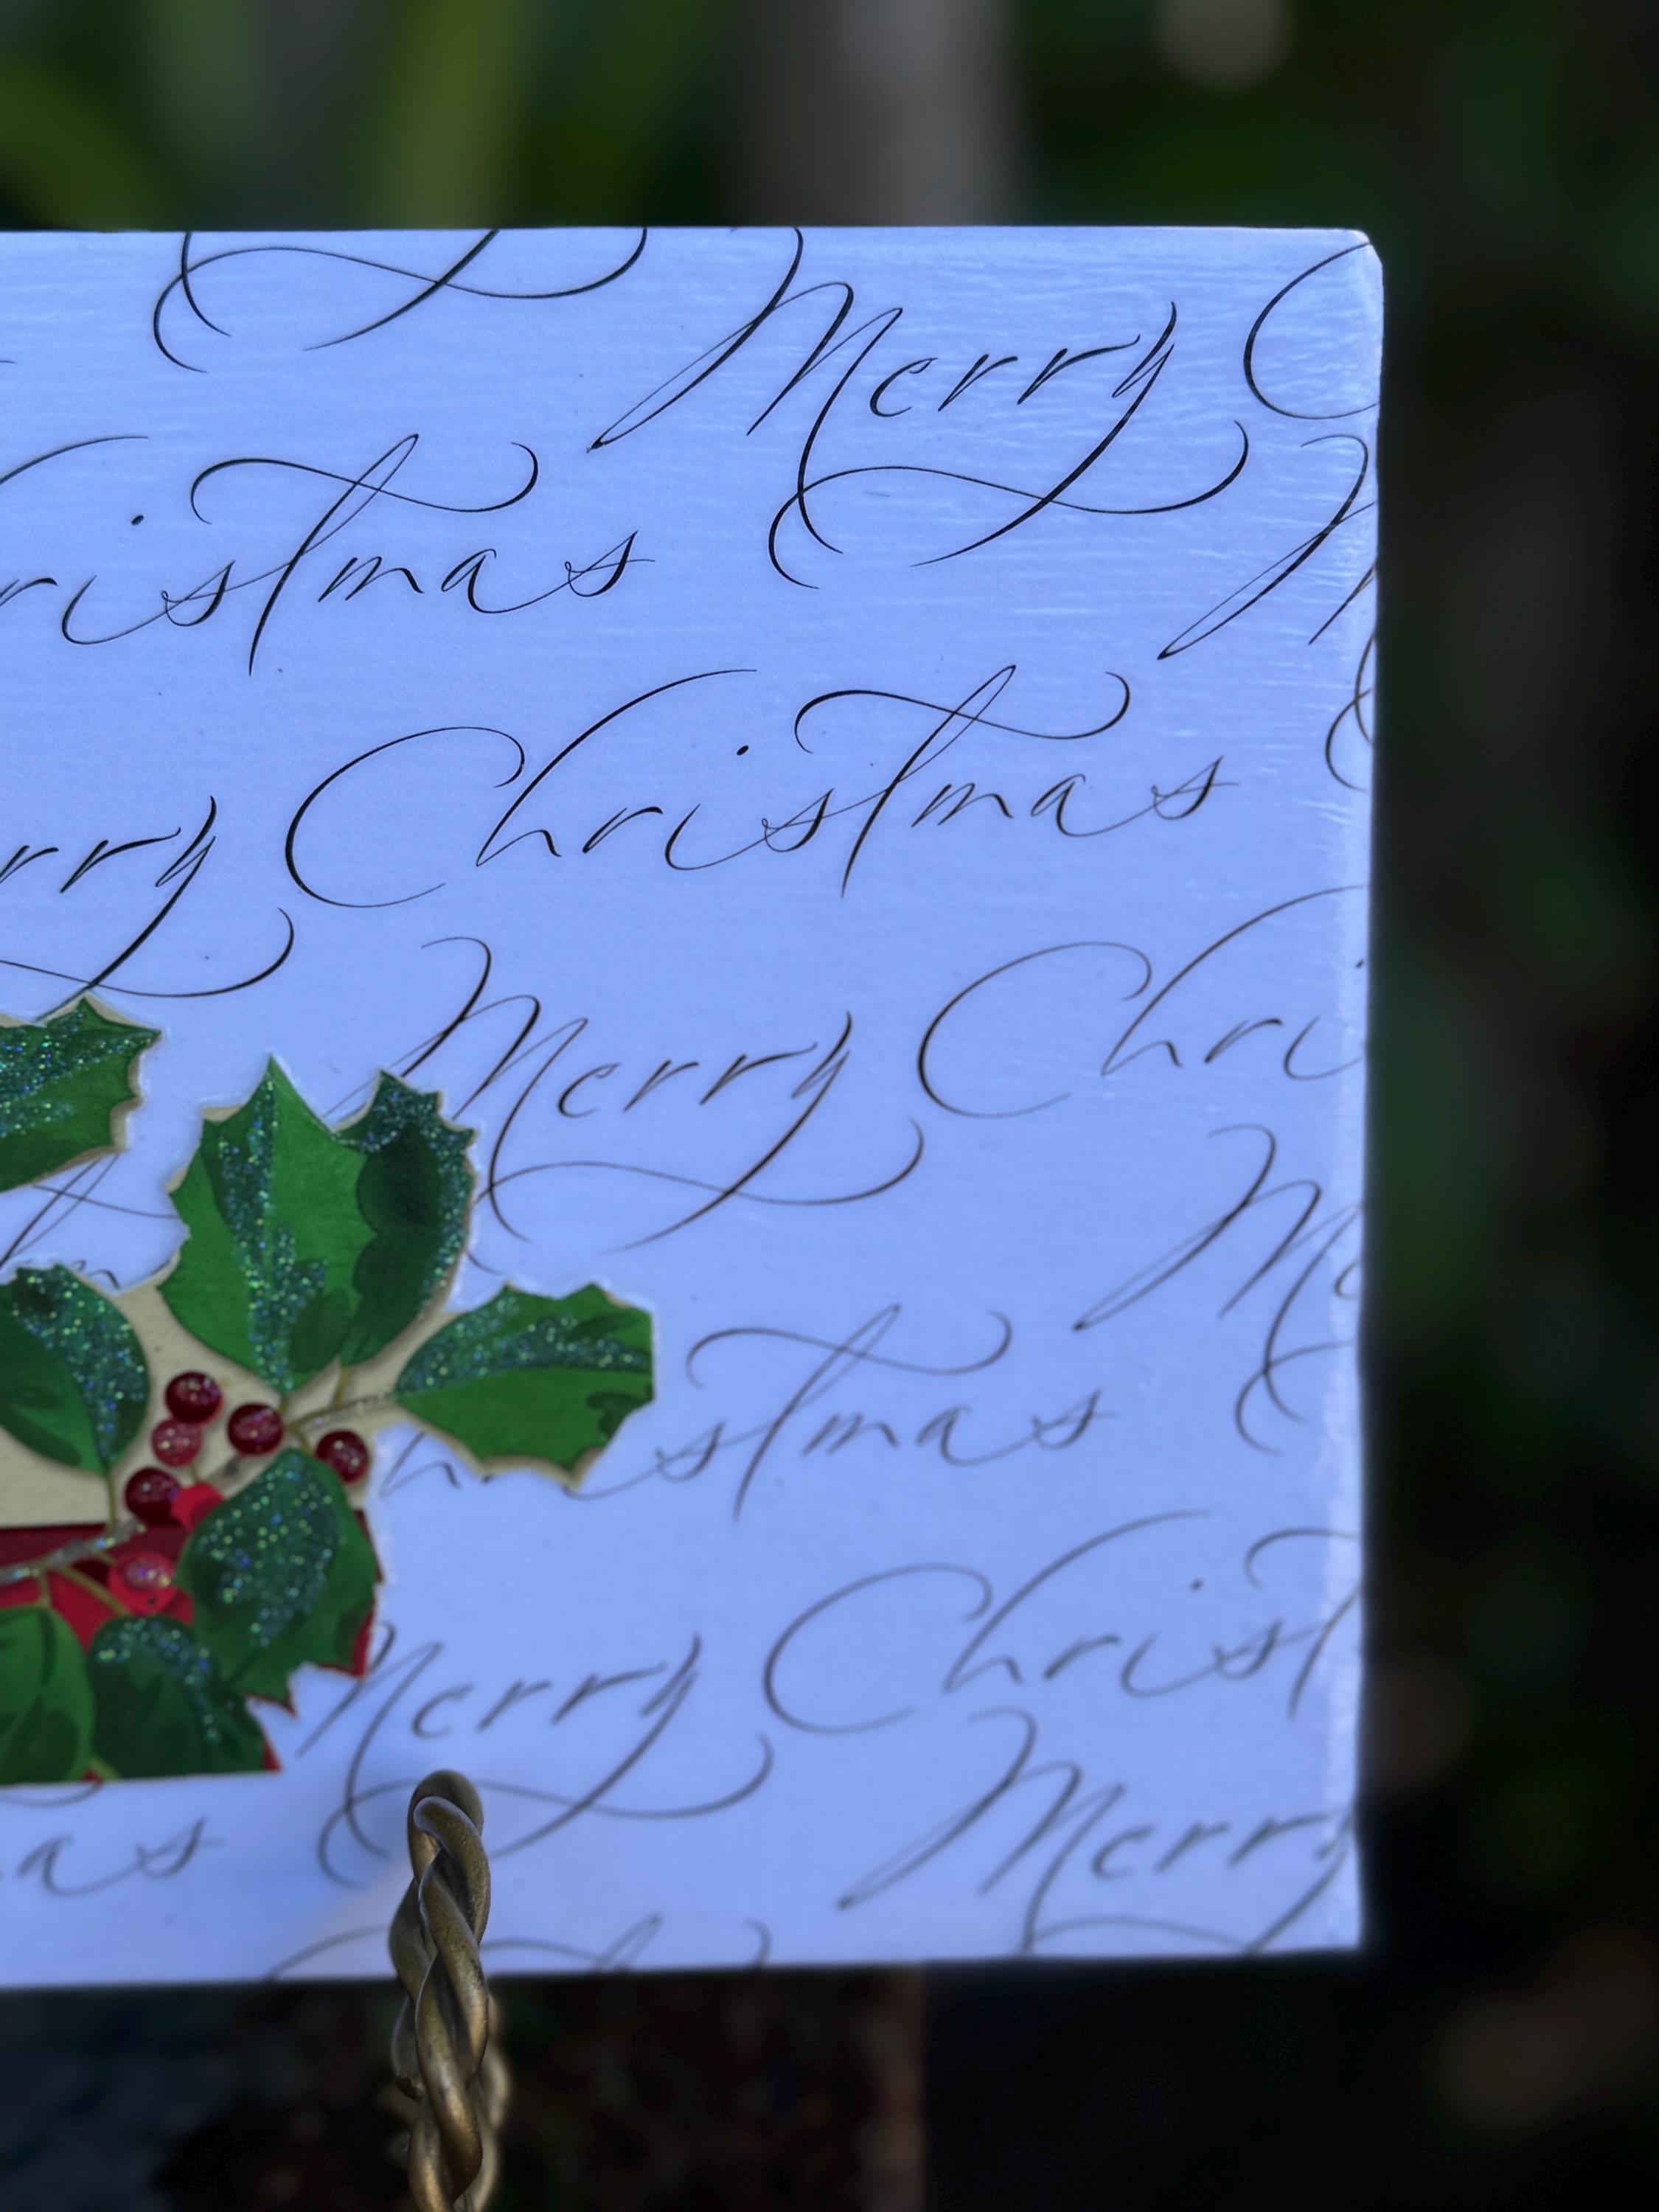 Merry C
ristmas M
rry Christmas
Merry Chri
Me
stmas
Merry Christ
as Merry